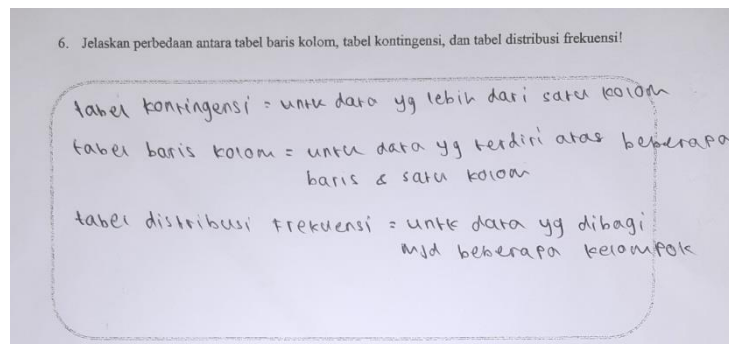 6. Jelaskan perbedaan antara tabel baris kolom, tabel kontingensi, dan tabel distribusi frekuensi!
tabel kontingensi = untk data yg lebih dari satu kolom
tabel baris kolom = untu data yg terdiri atas beberapa
baris & satu kolom
tabel distribusi frekuensi = untk data yg dibagi
mjd beberapa kelompok